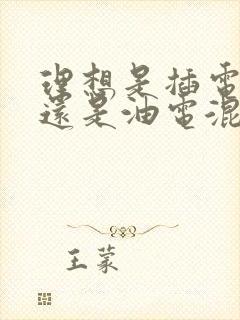 理想是插電
還是油電混
王蒙